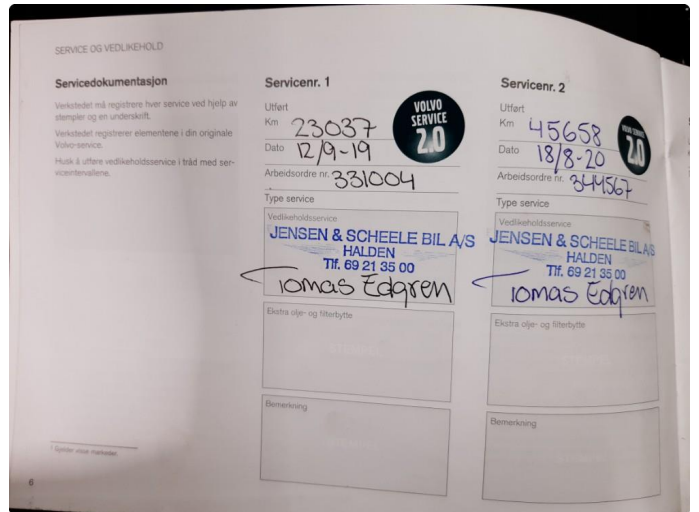 SERVICE OG VEDLIKEHOLD
Servicedokumentasjon
Verkstedet må registrere hver service ved hjelp av
stempler og en underskrift.
Verkstedet registrerer elementene i din originale
Volvo-service.
Husk å utføre vedlikeholdsservice i tråd med ser-
viceintervallene.
Servicenr. 1
Utført
Km 23037
Dato 12/9-19
Arbeidsordre nr. 331004
VOLVO
SERVICE
2.0
Type service
Vedlikeholdsservice
JENSEN & SCHEELE BIL A/S
HALDEN
Tlf. 69 21 35 00
Tomas Edgren
Ekstra olje- og filterbytte
Bemerkning
Servicenr. 2
Utført
Km 45658
Dato 18/8-20
Arbeidsordre nr. 344567
2.0
Type service
Vedlikeholdsservice
JENSEN & SCHEELE BIL A/S
HALDEN
Tlf. 69 21 35 00
Tomas Edgren
Ekstra olje- og filterbytte
Bemerkning
6